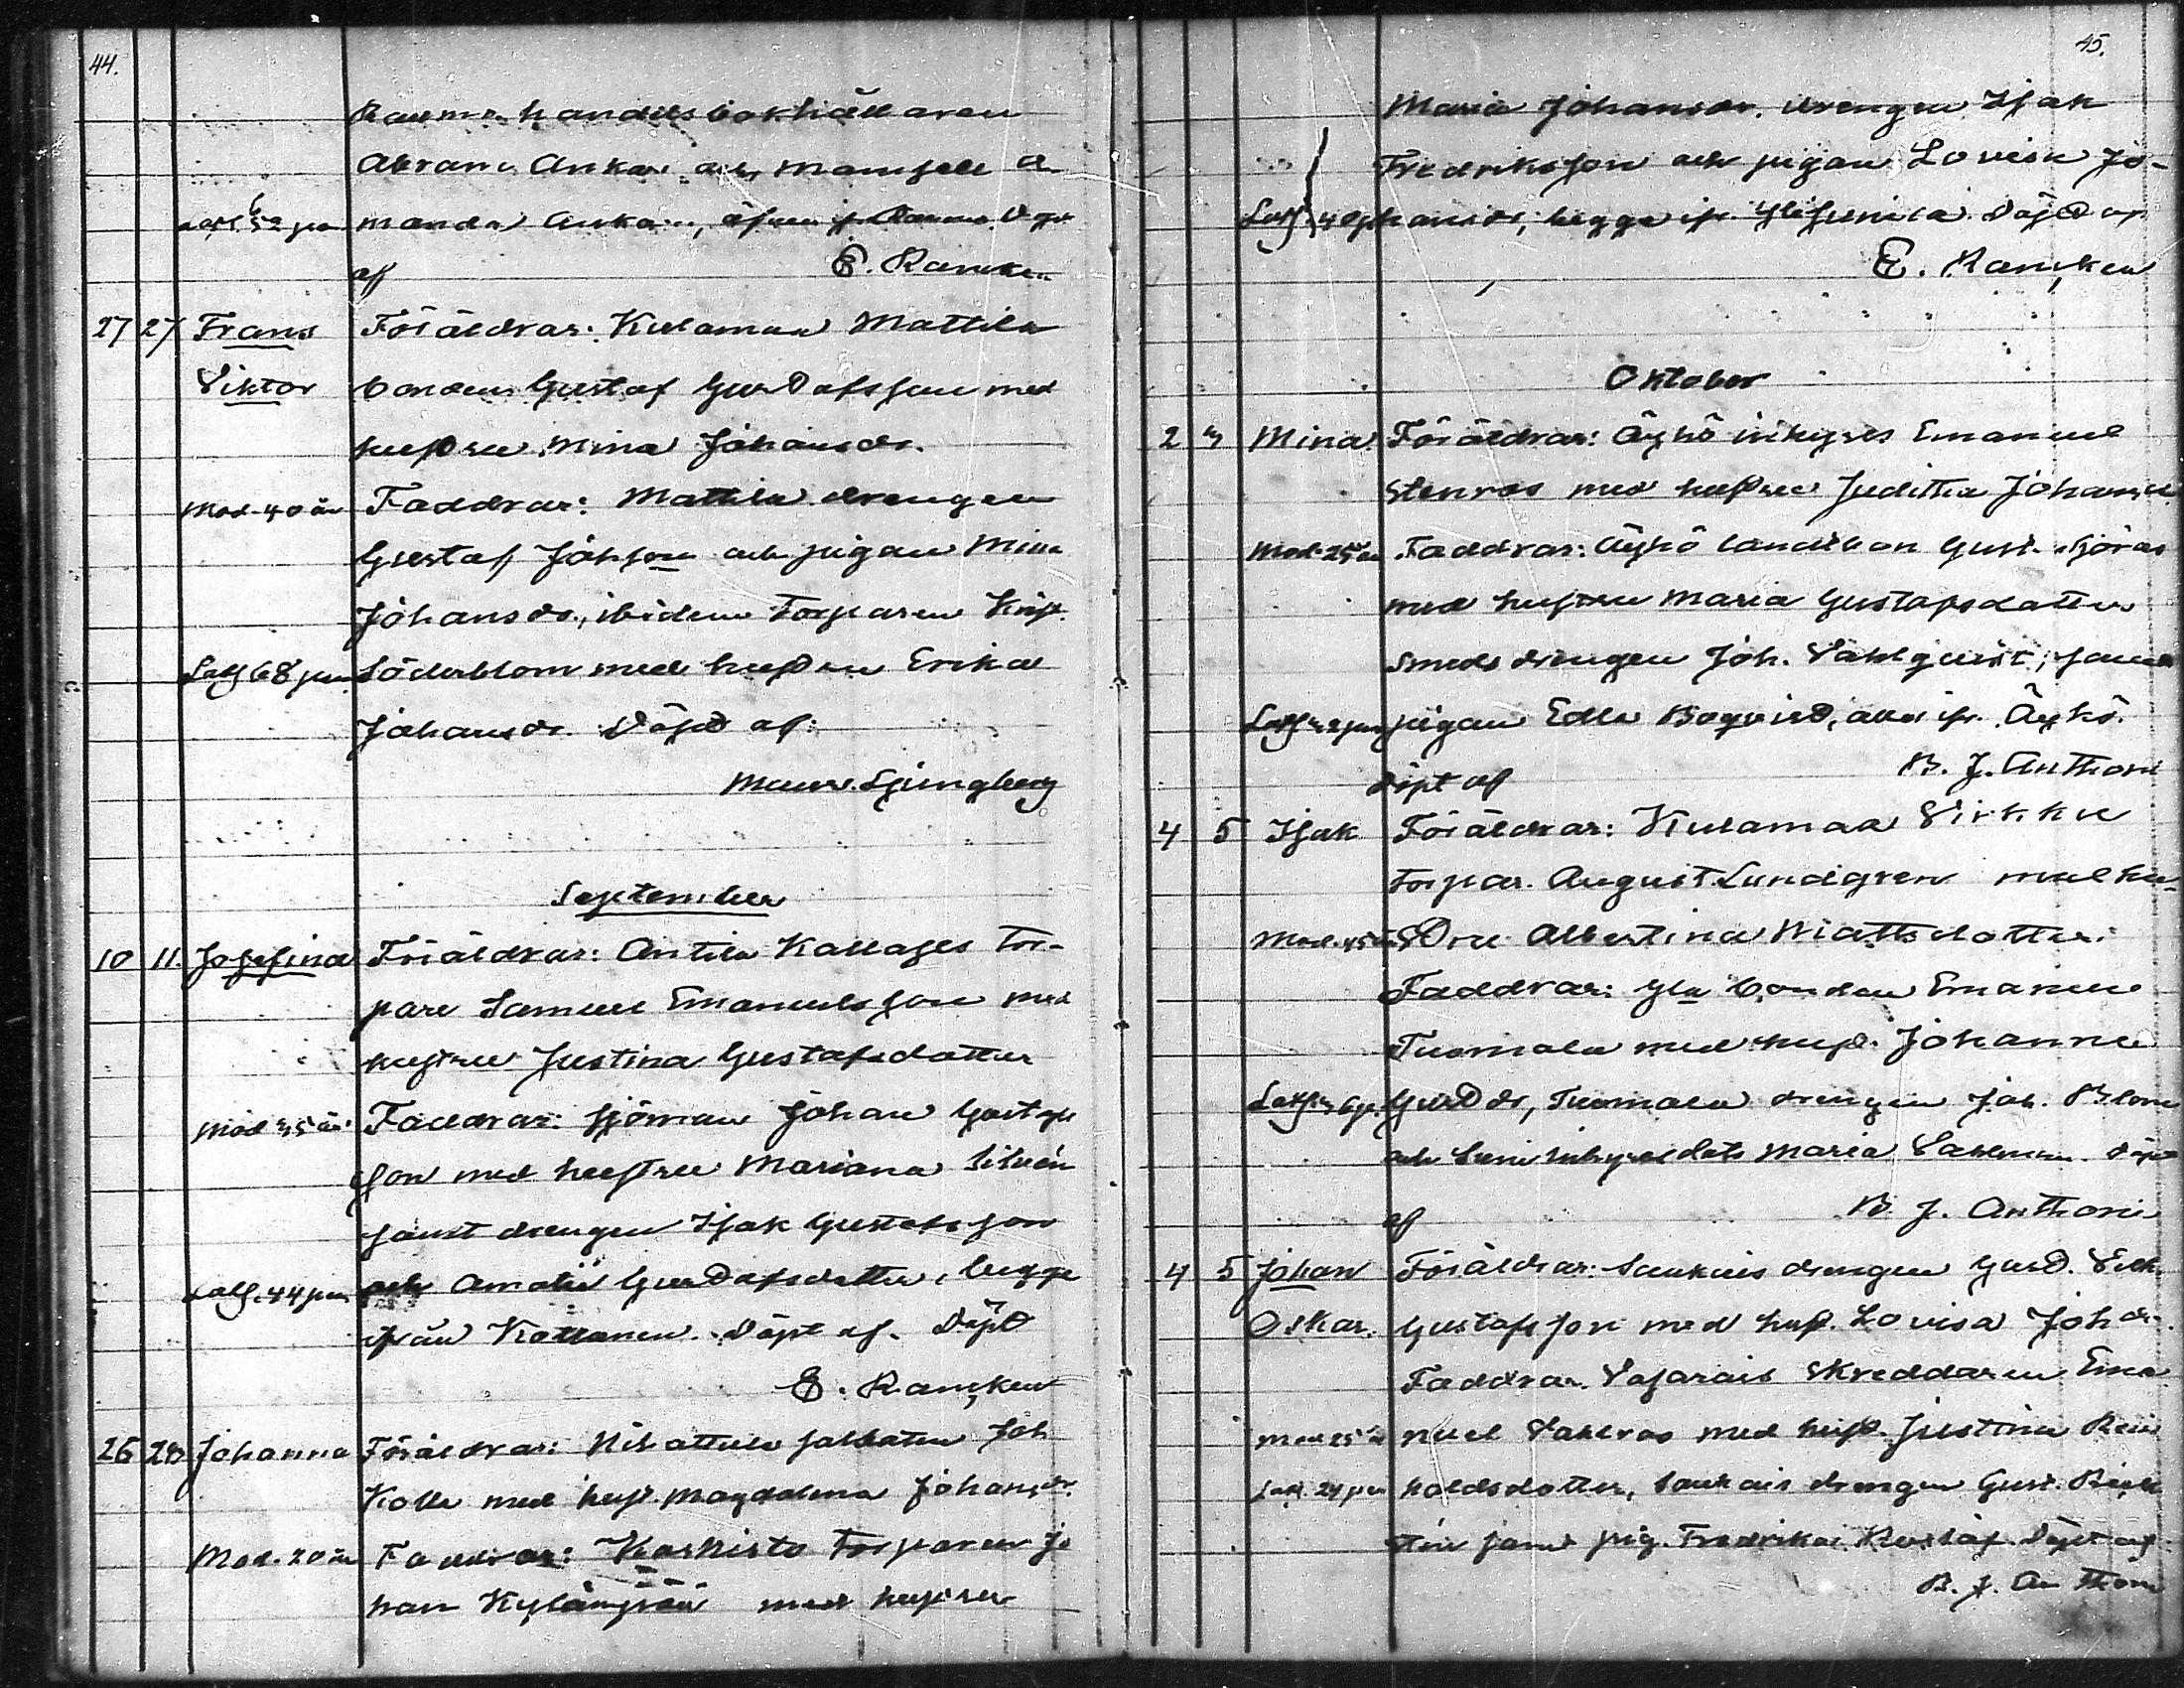 44.
Raumo handels bokhållaren
Abram Ankar och Mamsell A-
manda Ankar, äfven ifr. Raumo. Döpt
af E. Rancken
27 27 Frans Föräldrar: Kulamaa Mattila
Viktor bonden Gustaf Gustafsson med
hustru Mina Johansdr.
Mod. 40 år Faddrar: Mattila drengen
Gustaf Johsson och pigan Mina
Johansdr., ibidem Torparen
Söderblom med hustru Erika
Johansdr. Döpt af:
Maur. Ljungberg
September
10 11. Josefina Föräldrar: Antila Kallases Tor-
pare Samuel Emanuelsson med
hustru Justina Gustafsdotter
Mod 35 år. Faddrar: sjöman Johan Gustafs
son med hustru Mariana Silvén
samt drengen Isak Gustafsson
och Amalia Gustafsdotter, begge
ifrån Kollanen. Döpt af. Döpt
E. Rancken
26 28 Johanna Föräldrar: Nihattula soldaten Joh
Kolla med hust. Magdalena Johansdr.
Mod. 20 år Faddrar: Karhisto Torparen Jo
han Kylänpää med hustru
45.
Maria Johansdr. drengen Isak
Fredriksson och pigan Lovisa Jo-
hansdr, begge ifr. Döpt af
E. Rancken
Oktober
2 3 Mina. Föräldrar: Äyhö inhyses Emanuel
Stenros med hustru Juditha Johansd.
Mod. 25 år Faddrar: Äyhö landbon Gust. Sjöros
med hustru Maria Gustafsdotter
smeds drengen Joh. Vahlqvist, samt
pigan Edla Boqvist, alla ifr. Äyhö.
Döpt af B. J. Anthoni
4 5 Isak Föräldrar: Kulamaa Virkku
Torpar. August Lundgren med hu-
Mod. 45 år stru Albertina Mattsdotter.
Faddrar: Gla bonden Emanuel
Tuomola med hust. Johanna
Gustdr, Tuomola drengen Joh. Blom
och Suni inhysesdotr Maria Sahlman. Döpt
af B. J. Anthoni
4 5 Johan Föräldrar: Saukais drengen Gust. Vikt.
Oskar. Gustafsson med hust. Lovisa Johdr.
Faddrar. Vasarais Skreddaren Ema
Mod 25 år nuel Vahlros med hust. Justina Rein
holdsdotter, Saukais drengen Gust.
samt pig. Fredrika Döpt af:
B. J. Anthoni